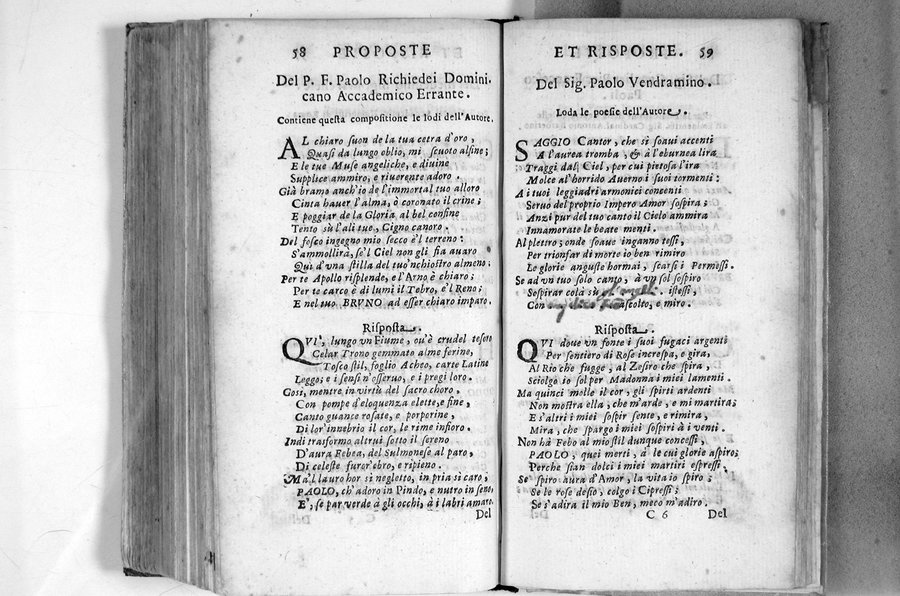 58 PROPOSTE
Del P. F. Paolo Richiedei Domini.
cano Accademico Errante.
Contiene questa compositione le lodi dell'Autore.
AL chiaro suon de la tua cetra d'oro,
Quasi da lungo oblio, mi scuoto alfine;
E le tue Muse angeliche, e diuine
Supplice ammiro, e riuerente adoro.
Già bramo anch'io de l'immortal tuo alloro
Cinta hauer l'alma, ò coronato il crine;
E poggiar de la Gloria al bel confine
Tento sù l'ali tue, Cigno canoro.
Del fosco ingegno mio secco è'l terreno:
S'ammollirà, se'l Ciel non gli fia auaro
Qui d'vna stilla del tuo'nchiostro almeno:
Per te Apollo risplende, e l'Arno è chiaro;
Per te carco è di lumi il Tebro, e'l Reno;
E nel tuo BRVNO ad esser chiaro imparo.
Risposta.
QVI', lungo vn Fiume, ou'è crudel tesoro
Celar Trono gemmato alme ferine,
Tosco stil, foglio Acheo, carte Latine
Leggo; e i sensi n'osseruo, e i pregi loro.
Così, mentre in virtù del sacro choro,
Con pompe d'eloquenza elette, e fine,
Canto guance rosate, e porporine,
Di lor'innebrio il cor, le rime infioro.
Indi trasformo altrui sotto il sereno
D'aura Febea, del Sulmonese al paro,
Di celeste furor'ebro, e ripieno.
Ma'l lauro hor sì negletto, in pria sì caro,
PAOLO, ch'adoro in Pindo, e nutro in seno,
E', se par verde à gli occhi, à i labri amaro
Del
ET RISPOSTE. 59
Del Sig. Paolo Vendramino.
Loda le poesie dell'Autore.
SAGGIO Cantor, che sì soaui accenti
A l'aurea tromba, & à l'eburnea lira
Traggi dal Ciel, per cui pietosa l'ira
Molce al'horrido Auerno i suoi tormenti:
A i tuoi leggiadri armonici concenti
Seruo del proprio Impero Amor sospira;
Anzi pur del tuo canto il Cielo ammira
Innamorate le beate menti.
Al plettro; onde soaue inganno tessi,
Per trionfar di morte io ben rimiro
Le glorie anguste hormai, scarsi i Permessi.
Se ad vn tuo solo canto, à vn sol sospiro
Sospirar colà sù istessi,
Con ascolto, e miro.
Risposta.
QVI doue vn fonte i suoi fugaci argenti
Per sentiero di Rose increspa, e gira,
Al Rio che fugge, al Zefiro che spira,
Sciolgo io sol per Madonna i miei lamenti.
Ma quinci molle il cor, gli spirti ardenti
Non mostra ella, che m'arde, e mi martira;
E s'altri i miei sospir sente, e rimira,
Mira, che spargo i miei sospiri à i venti.
Non hà Febo al mio stil dunque concessi,
PAOLO, quei merti, à le cui glorie aspiro;
Perche sian dolci i miei martiri espressi.
Se spiro aura d'Amor, la vita io spiro;
Se le rose desio, colgo i Cipressi;
Se s'adira il mio Ben, meco m'adiro.
C 6 Del